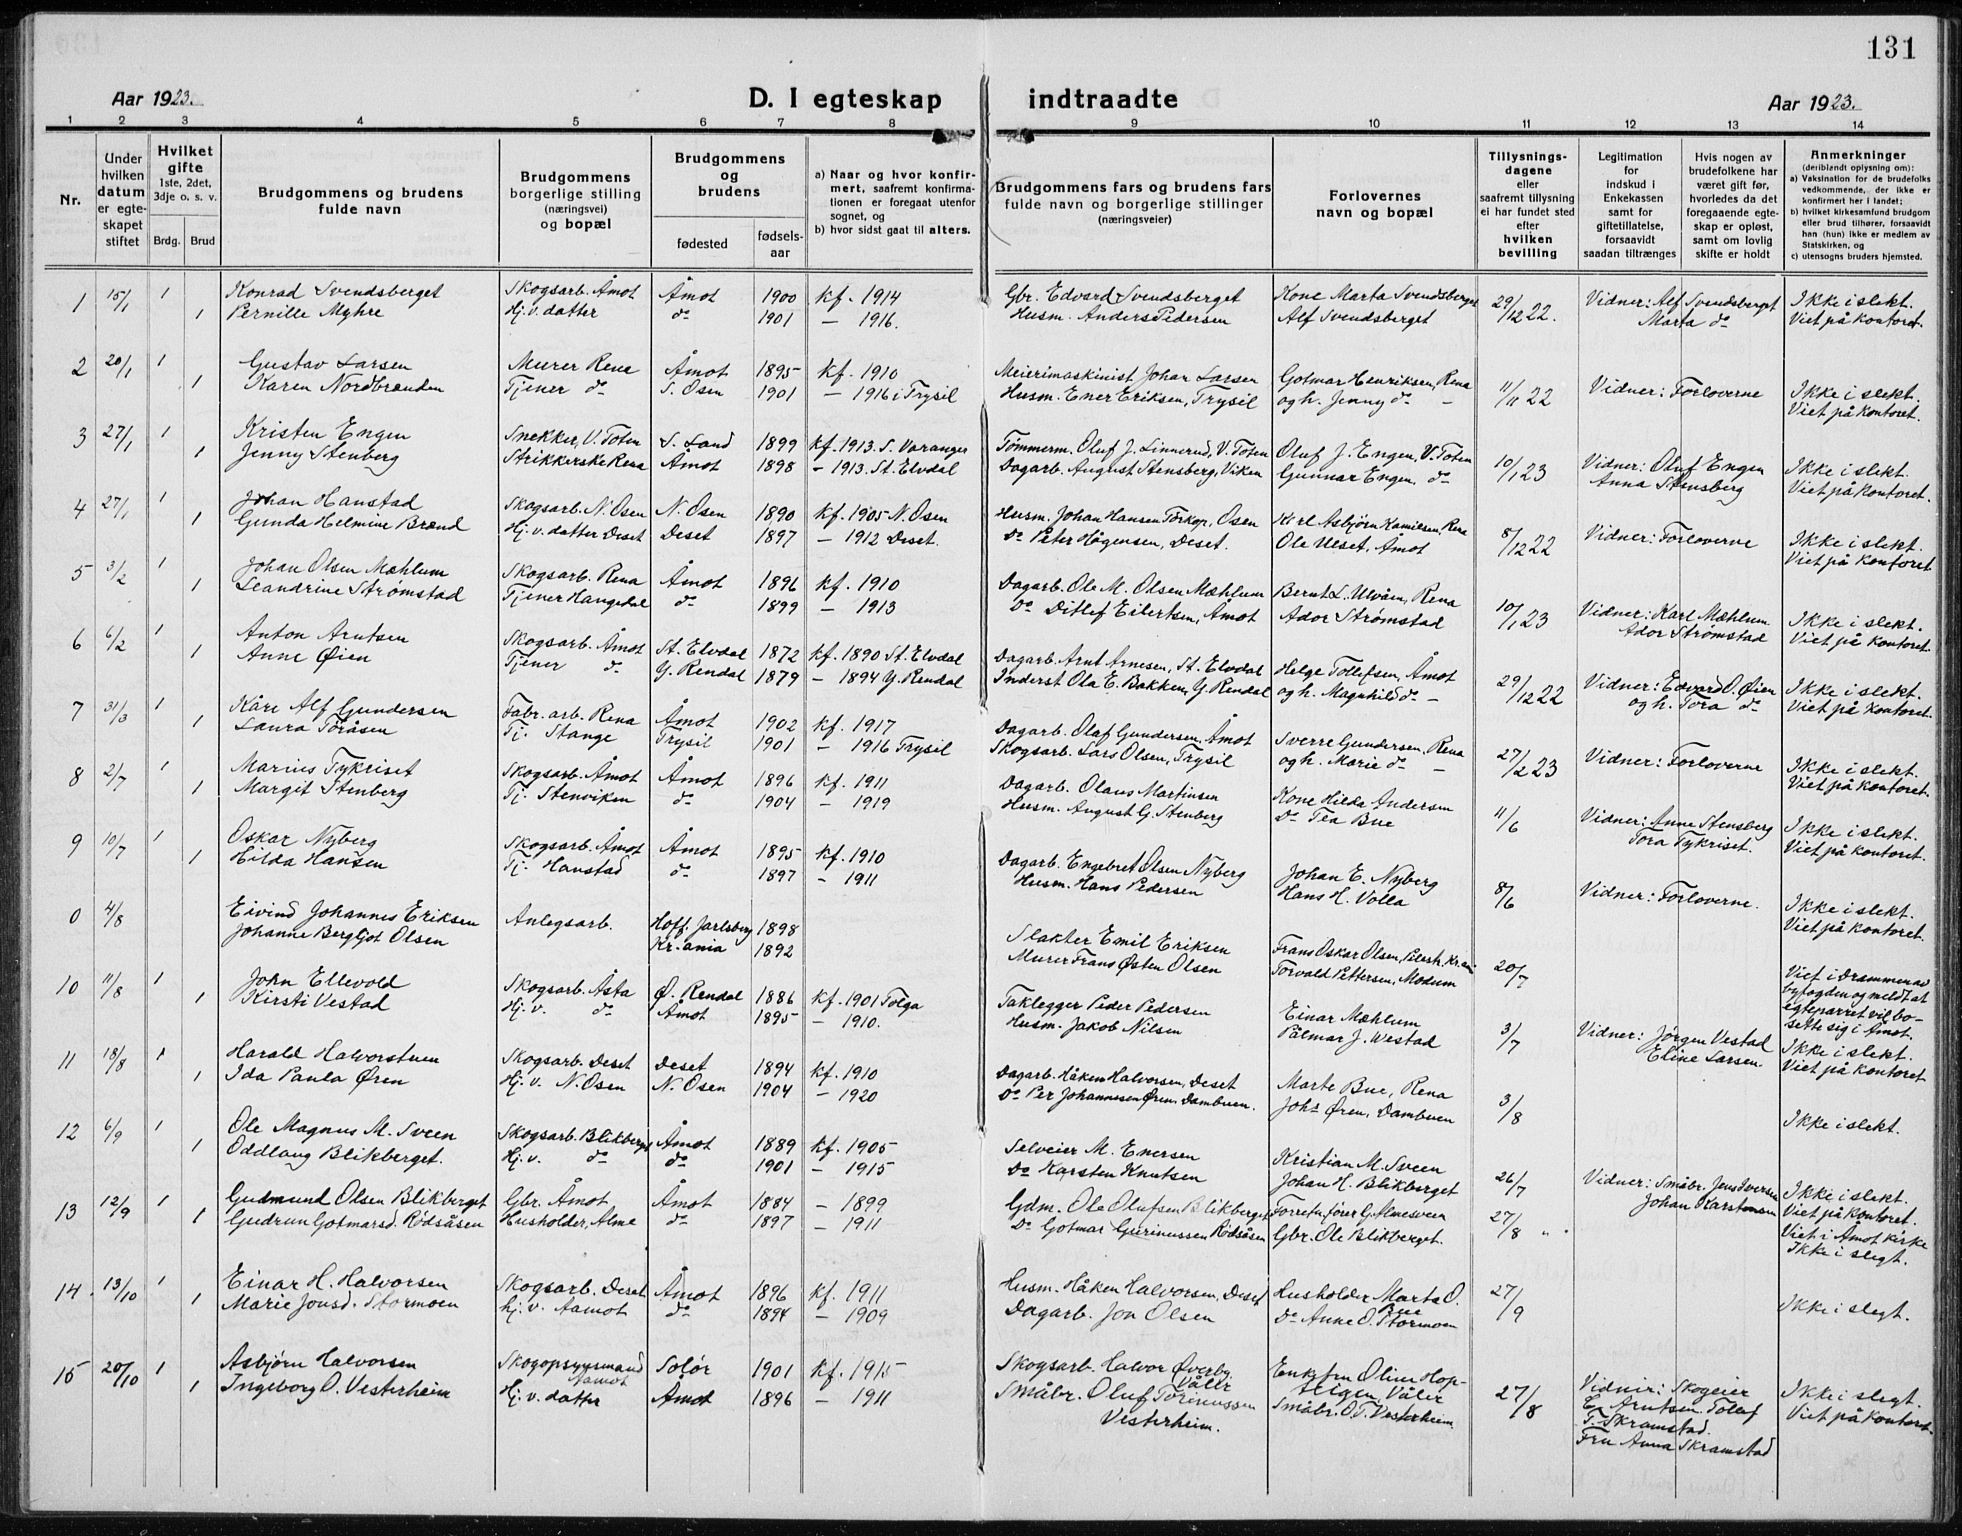 131
Aar 1923.
D. I egteskap indtraadte
Aar 1923.
1 2 3 4 5 6 7 8 9 10 11 12 13 14
Nr.
Under hvilken datum er egteskapet stiftet
Hvilket gifte 1ste, 2det, 3dje o. s. v.
Brdg. Brud
Brudgommens og brudens fulde navn
Brudgommens borgerlige stilling (næringsvei) og bopæl
Brudgommens og brudens
fødested
fødsels-aar
a) Naar og hvor konfirmert, saafremt konfirmationen er foregaat utenfor sognet, og
b) hvor sidst gaat til alters.
Brudgommens fars og brudens fars fulde navn og borgerlige stillinger (næringsveier)
Forlovernes navn og bopæl
Tillysningsdagene eller saafremt tillysning ei har fundet sted efter hvilken bevilling
Legitimation for indskud i Enkekassen samt for giftetillatelse, forsaavidt saadan tiltrænges
Hvis nogen av brudefolkene har været gift før, hvorledes da det foregaaende egteskap er opløst, samt om lovlig skifte er holdt
Anmerkninger (deriblandt oplysning om):
a) Vaksination for de brudefolks vedkommende, der ikke er konfirmert her i landet;
b) hvilket kirkesamfund brudgom eller brud tilhører, forsaavidt han (hun) ikke er medlem av Statskirken, og
c) utensogns bruders hjemsted.
1 15/1 1 Konrad Svendsberget Skogsarb. Åmot Åmot 1900 kf. 1914 Gbr. Edvard Svendsberget Kone Marta Svendsberget 29/12 22. Vidner: Alf Svendsberget Ikke i slekt.
1 Pernille Myhre Hj. v. datter do 1901 — 1916. Husm. Anders Pedersen Alf Svendsberget Marta do Viet på kontoret.
2 20/1 1 Gustav Larsen Murer Rena Åmot 1895 kf. 1910 Meierimaskinist Johar Larsen Gotmar Henriksen, Rena 11/11 22 Vidner: Forloverne Ikke i slekt.
1 Karen Nordbrænden Tjener do S. Osen 1901 — 1916 i Trysil Husm. Ener Eriksen, Trysil og h. Jenny do — Viet på kontoret.
3 27/1 1 Kristen Engen Snekker, V. Toten S. Land 1899 kf. 1913 S. Varanger Tømmerm. Oluf J. Linnerud, V. Toten Oluf J. Engen, V. Toten 10/1 23 Vidner: Oluf Engen Ikke i slekt.
1 Jenny Stenberg Strikkerske Rena Åmot 1898 — 1913. St. Elvdal Dagarb. August Stensberg, Viken Gunnar Engen, do Anna Stensberg Viet på kontoret.
4 27/1 1 Johan Hanstad Skogsarb. N. Osen N. Osen 1890 kf. 1905 N. Osen Husm. Johan Hansen Torkop, Osen Karl Asbjørn Kamilsen, Rena 8/12 22 Vidner: Forloverne Ikke i slekt.
1 Gunda Helmine Brænd Hj. v. datter Deset Deset 1897 — 1912 Deset. Do Peter Högensen, Deset. Ole Ulset, Åmot Viet på kontoret
5 3/2 1 Johan Olsen Mæhlum Skogsarb. Rena Åmot 1896 kf. 1910 Dagarb. Ole M. Olsen Mæhlum Bernt L. Ulvåen, Rena 10/1 23 Vidner: Karl Mæhlum Ikke i slekt.
1 Leandrine Strømstad Tjener Hangedal do 1899 — 1913 Do Ditlef Eilertsen, Åmot Ador Strømstad Ador Strømstad Viet på kontoret.
6 6/2 1 Anton Arntsen Skogsarb. Åmot St. Elvdal 1872 kf. 1890 St. Elvdal Dagarb. Arnt Arnesen, St. Elvdal Helge Tollefsen, Åmot 29/12 22 Vidner: Edvard O. Øien Ikke i slekt.
1 Anne Øien Tjener do Y. Rendal 1879 — 1894 Y. Rendal Inderst Ola E. Bakken, Y. Rendal og h. Magnhild do — og h. Tora do Viet på kontoret.
7 31/3 1 Kåre Alf Gundersen Fabr. arb. Rena Åmot 1902 kf. 1917 Dagarb. Olaf Gundersen, Åmot Sverre Gundersen, Rena 27/2 23 Vidner: Forloverne Ikke i slekt.
1 Laura Toråsen Tj. Stange Trysil 1901 — 1916 Trysil Skogsarb. Lars Olsen, Trysil og h. Marie do — Viet på kontoret.
8 2/7 1 Marius Tykriset Skogsarb. Åmot Åmot 1896 kf. 1911 Dagarb. Olaus Martinsen Kone Hilda Andersen 11/6 Vidner: Anne Stensberg Ikke i slekt.
1 Margit Stenberg Tj. Stenviken do 1904 — 1919 Husm. August G. Stenberg Do Tea Bue Tora Tykriset. Viet på kontoret.
9 10/7 1 Oskar Nyberg Skogsarb. Åmot Åmot 1895 kf. 1910 Dagarb. Engebret Olsen Nyberg Johan E. Nyberg 8/6 Vidner: Forloverne. Ikke i slekt.
1 Hilda Hansen Tj. Hanstad do 1897 — 1911 Husm. Hans Pedersen Hans H. Volla Viet på kontoret.
0 4/8 Eivind Johannes Eriksen Anlegsarb. Hoff. Jarlsberg 1898 Slakter Emil Eriksen Frans Oskar Olsen, 20/7 Viet i Drammen av
Johanne Bergljot Olsen Kr.ania 1892 Murer Frans Østen Olsen Torvald Pettersen, Modum byfogden og meldt at egteparret vil bosette sig i Åmot.
10 11/8 1 John Ellevold Skogsarb. Åsta Ø. Rendal 1886 kf. 1901 Tolga Taklegger Peder Pedersen Einar Mæhlum 3/7 Vidner: Jørgen Vestad Ikke i slekt.
1 Kirsti Vestad Hj. v. do Åmot 1895 — 1910. Husm. Jakob Nilsen Palmar J. Westad Eline Larsen Viet på kontoret
11 18/8 1 Harald Halvorstuen Skogsarb. Deset Deset 1894 kf. 1910 Dagarb. Håken Halvorsen, Deset Marte Bue, Rena 3/8 Ikke i slekt.
1 Ida Paula Øren Hj. v. N. Osen N. Osen 1904 — 1920 Do Per Johannesen Øren, Dambuen. Johs Øren, Dambuen
12 6/9 1 Ole Magnus M. Sveen Skogsarb. Blikberget Åmot 1889 kf. 1905 Selveier M. Enersen Kristian M. Sveen 26/7 Vidner: Småbr. Jens Iversen Ikke i slekt.
1 Oddlaug Blikberget. Hj. v. do do 1901 — 1915 Do Karsten Knutsen Johan H. Blikberget Johan Karstensen Viet på kontoret.
13 12/9 1 Gudmund Olsen Blikberget Gbr. Åmot Åmot 1884 — 1899 Gdm. Ole Olufsen Blikberget Forretn.fører G. Almesveen 27/8 " . Viet i Åmot kirke
1 Gudrun Gotmarsd. Rödsåsen Husholder, Alme do 1897 — 1911 Do Gotmar Gurinussen Rödsåsen Gbr. Ole Blikberget. Ikke i slegt.
14. 13/10 1 Einar H. Halvorsen Skogsarb. Deset Åmot 1896 kf. 1911 Husm. Håken Halvorsen, Deset Husholder Marta O. Bue 27/9 Ikke i slegt.
1 Marie Jonsd. Stormoen hj. v. Aamot do 1894 — 1909 Dagarb. Jon Olsen Do Anne O. Stormoen
15 20/10 1 Asbjørn Halvorsen Skogopsynsmand Aamot Solör 1901 kf. 1915 Skogsarb. Halvor Øverby, Våler Enkefru Oline Hopstigen, Våler 27/8 Vidnir: Skogeier Ikke i slegt.
1 Ingeborg O. Vesterheim Hj. v. datter Åmot 1896 — 1911 Småbr. Oluf Torinussen Vesterheim. Småbr. O. T. Vesterheim E. Arntsen. Tollef T. Skramstad. Fru Anna Skramstad Viet på kontoret.